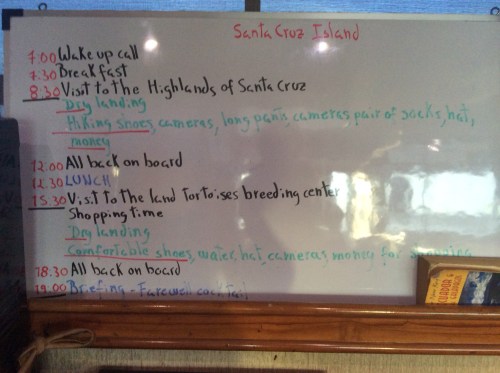 Santa Cruz Island
7:00 Wake up call
7:30 Breakfast
8:30 Visit to the Highlands of Santa Cruz
Dry landing
Hiking shoes, cameras, long pants, cameras pair of socks, hat,
money
12:00 All back on board
12.30 LUNCH
15.30 Visit to the land Tortoises breeding center
Shopping time
Dry landing
Comfortable shoes, water, hat, cameras, money for shopping
18:30 All back on board
19:00 Briefing - Farewell cocktail